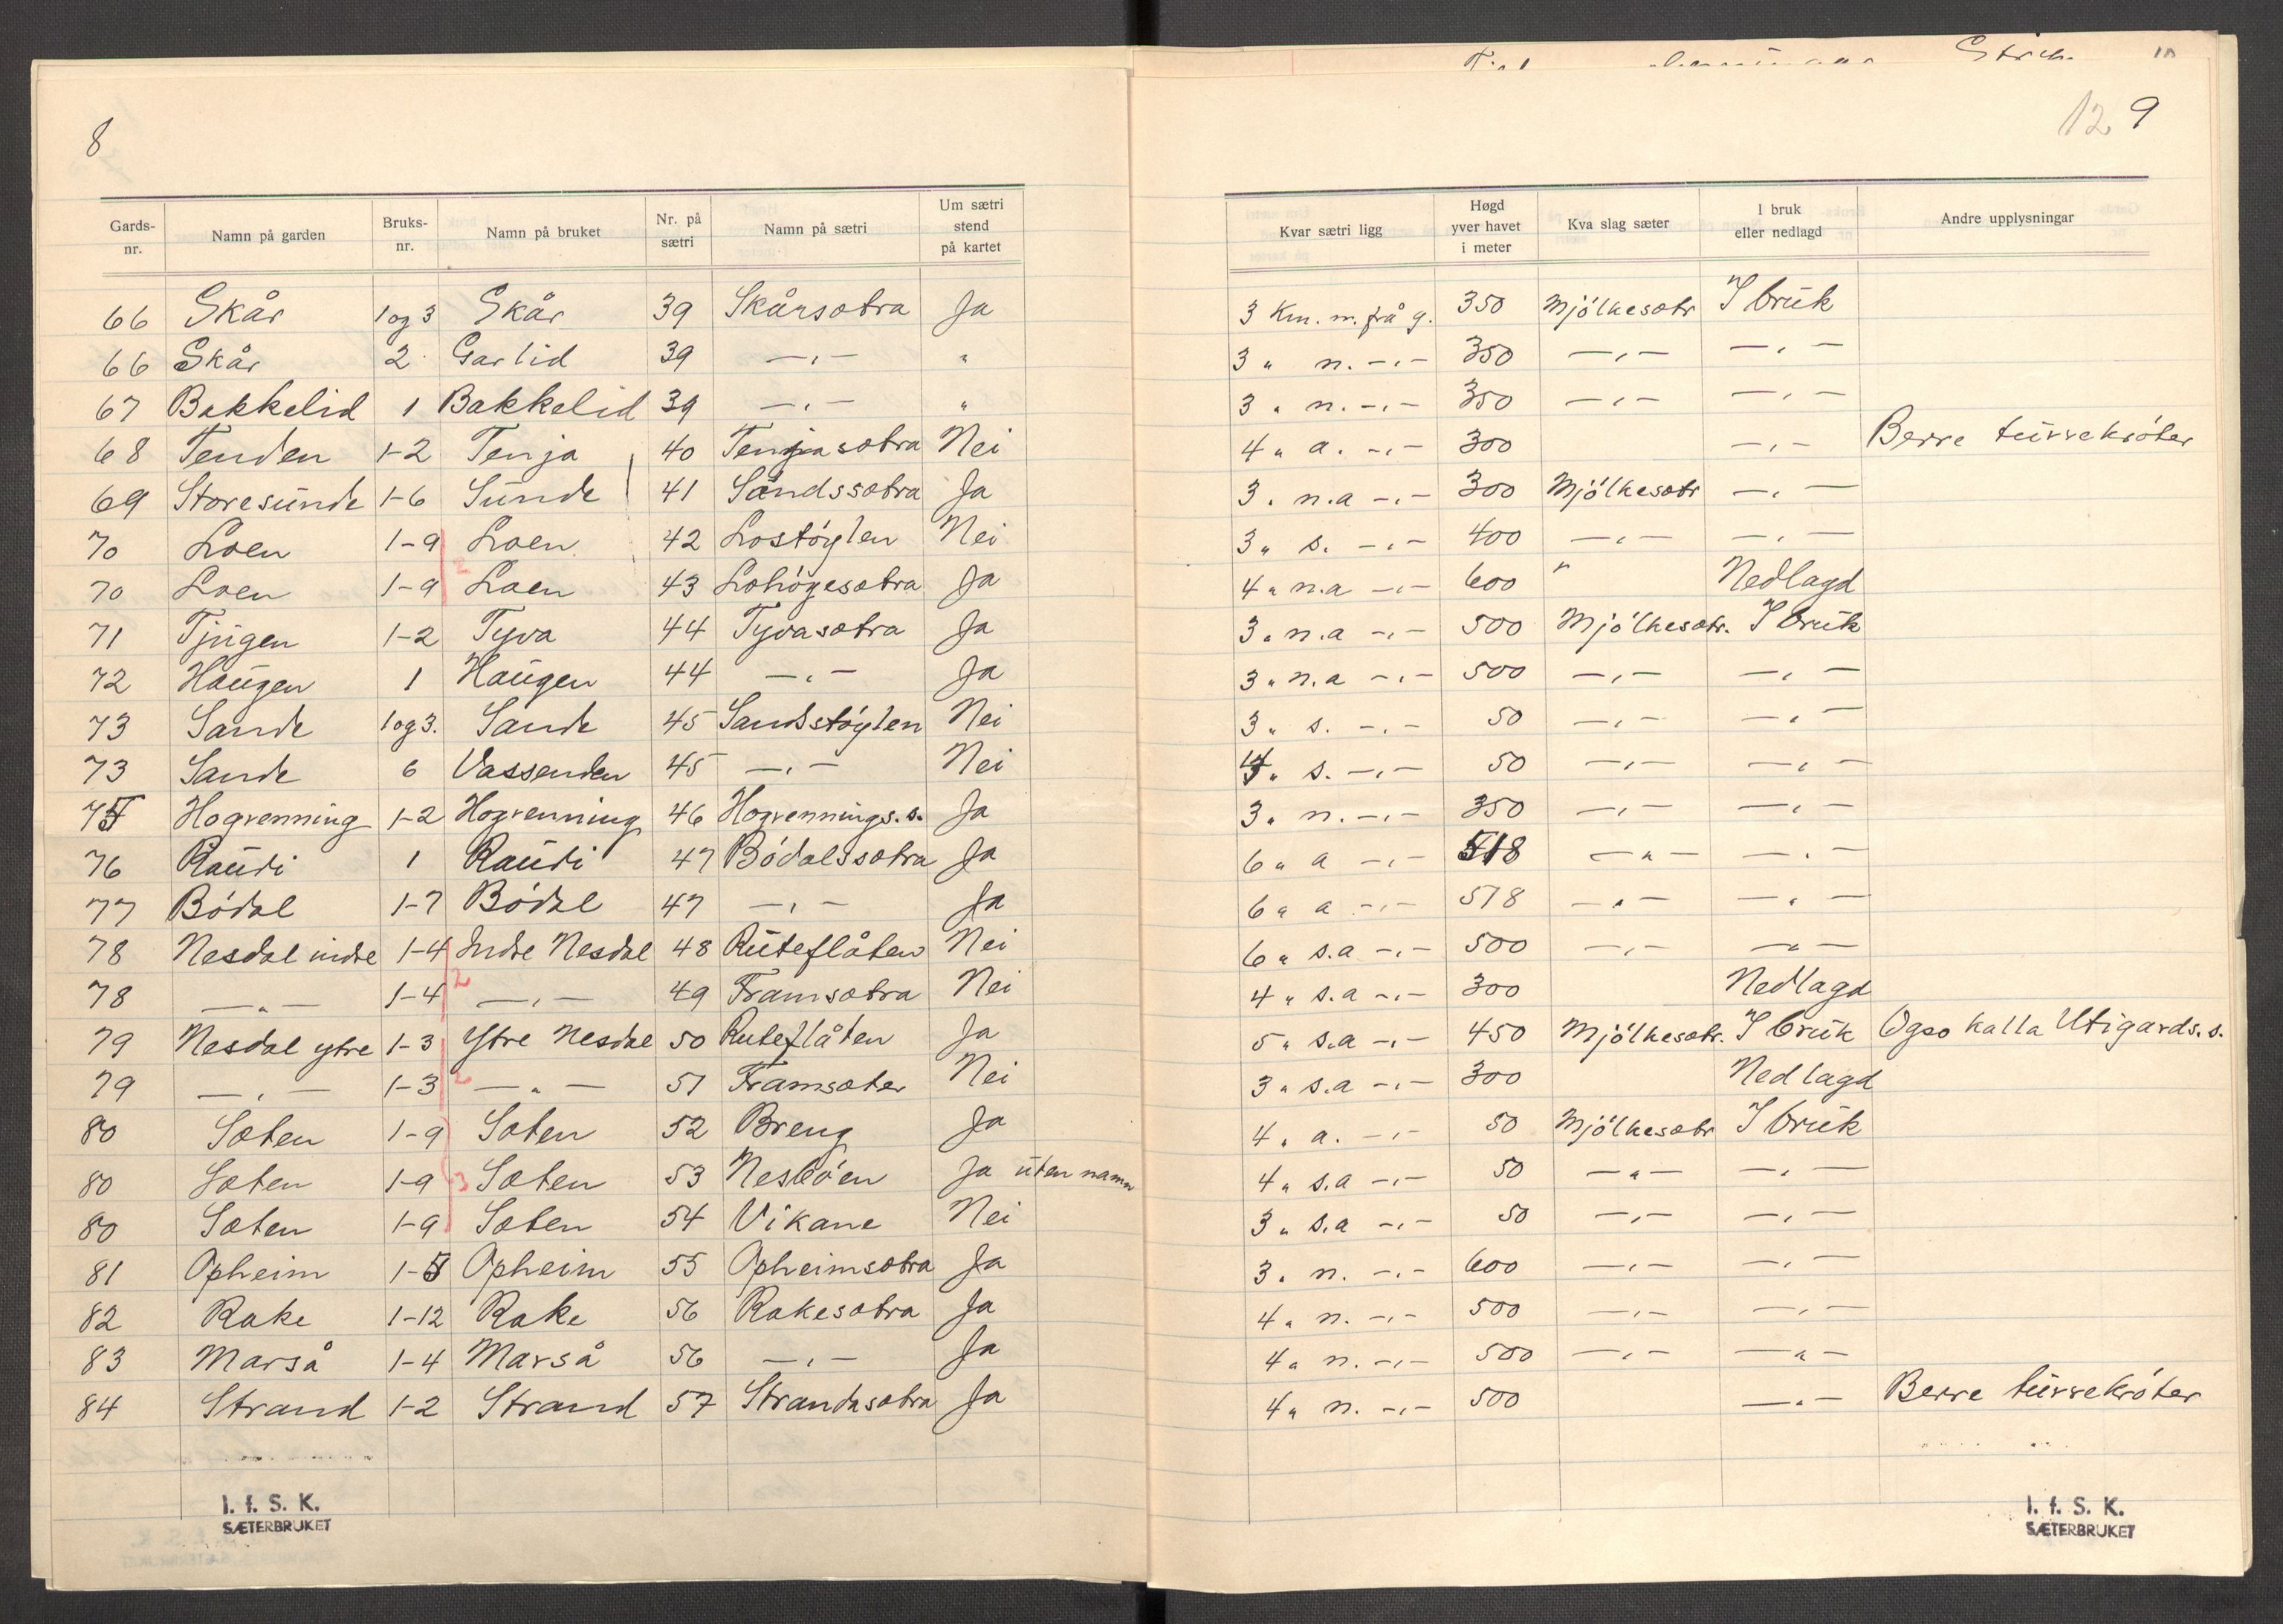 8
Gards-nr. Namn på garden Bruks-nr. Namn på bruket Nr. på sætri Namn på sætri Um sætri stend på kartet
66 Skår 1og3 Skår 39 Skårsætra Ja
66 Skår 2 Garlid 39 —„— "
67 Bakkelid 1 Bakkelid 39 —„— "
68 Tenden 1-2 Tenja 40 Tenjasætra Nei
69 Storesunde 1-6 Sunde 41 Sandssætra Ja
70 Loen 1-9 Loen 42 Lostøylen Nei
70 Loen 1-9 2 Loen 43 Lohøgesætra Ja
71 Tjugen 1-2 Tyva 44 Tyvasætra Ja
72 Haugen 1 Haugen 44 —„— Ja
73 Sande 1og3. Sande 45 Sandstøylen Nei
73 Sande 6 Vassenden 45 —„— Nei
75 Hogrenning 1-2 Hogrenning 46 Hogrennings.s. Ja
76 Raudi 1 Raudi 47 Bødalssætra Ja
77 Bødal 1-7 Bødal 47 —„— Ja
78 Nesdal indre 1-4 Indre Nesdal 48 Ruteflåten Nei
78 —„— 1-4 2 —„— 49 Framsætra Nei
79 Nesdal ytre 1-3 Ytre Nesdal 50 Ruteflåten Ja
79 —„— 1-3 2 —„— 51 Framsæter Nei
80 Sæten 1-9 Sæten 52 Breng Ja
80 Sæten 1-9 3 Sæten 53 Nesbøen Ja uten namn
80 Sæten 1-9 Sæten 54 Vikane Nei
81 Opheim 1-5 Opheim 55 Opheimsætra Ja
82 Rake 1-12 Rake 56 Rakesætra Ja
83 Marså 1-4 Marså 56 —„— Ja
84 Strand 1-2 Strand 57 Strandasætra Ja
I. f. S. K.
SÆTERBRUKET
12 9
Kvar sætri ligg Høgd yver havet i meter Kva slag sæter I bruk eller nedlagd Andre upplysningar
3 Km. n. frå g. 350 Mjølkesætr I bruk
3 " n. -„- 350 —„— —„—
3 " n. -„- 350 —„— —„—
4 " a. -„- 300 —„— Berre turrekrøter
3 " n.a -„- 300 Mjølkesætr —„—
3 " s. -„- 400 —„— —„—
4 " n.a -„- 600 " Nedlagd
3 " n.a -„- 500 Mjølkesætr. I bruk
3 " n.a -„- 500 —„— —„—
3 " s. -„- 50 —„— —„—
4 " s. -„- 50 —„— —„—
3 " n. -„- 350 —„— —„—
6 " a -„- 518 —„— —„—
6 " a -„- 518 —„— —„—
6 " s.a -„- 500 —„— —„—
4 " s.a -„- 300 Nedlagd
5 " s.a -„- 450 Mjølkesætr. I bruk Ogso kalla Utigards.s.
3 " s.a -„- 300 Nedlagd
4 " a. -„- 50 Mjølkesætr I bruk
4 " s.a -„- 50 —„— —„—
3 " s.a -„- 50 —„— —„—
3 " n. -„- 600 —„— —„—
4 " n. -„- 500 —„— —„—
4 " n. -„- 500 —„— —„—
4 " n. -„- 500 —„— Berre turrekrøter
I. f. S. K.
SÆTERBRUKET